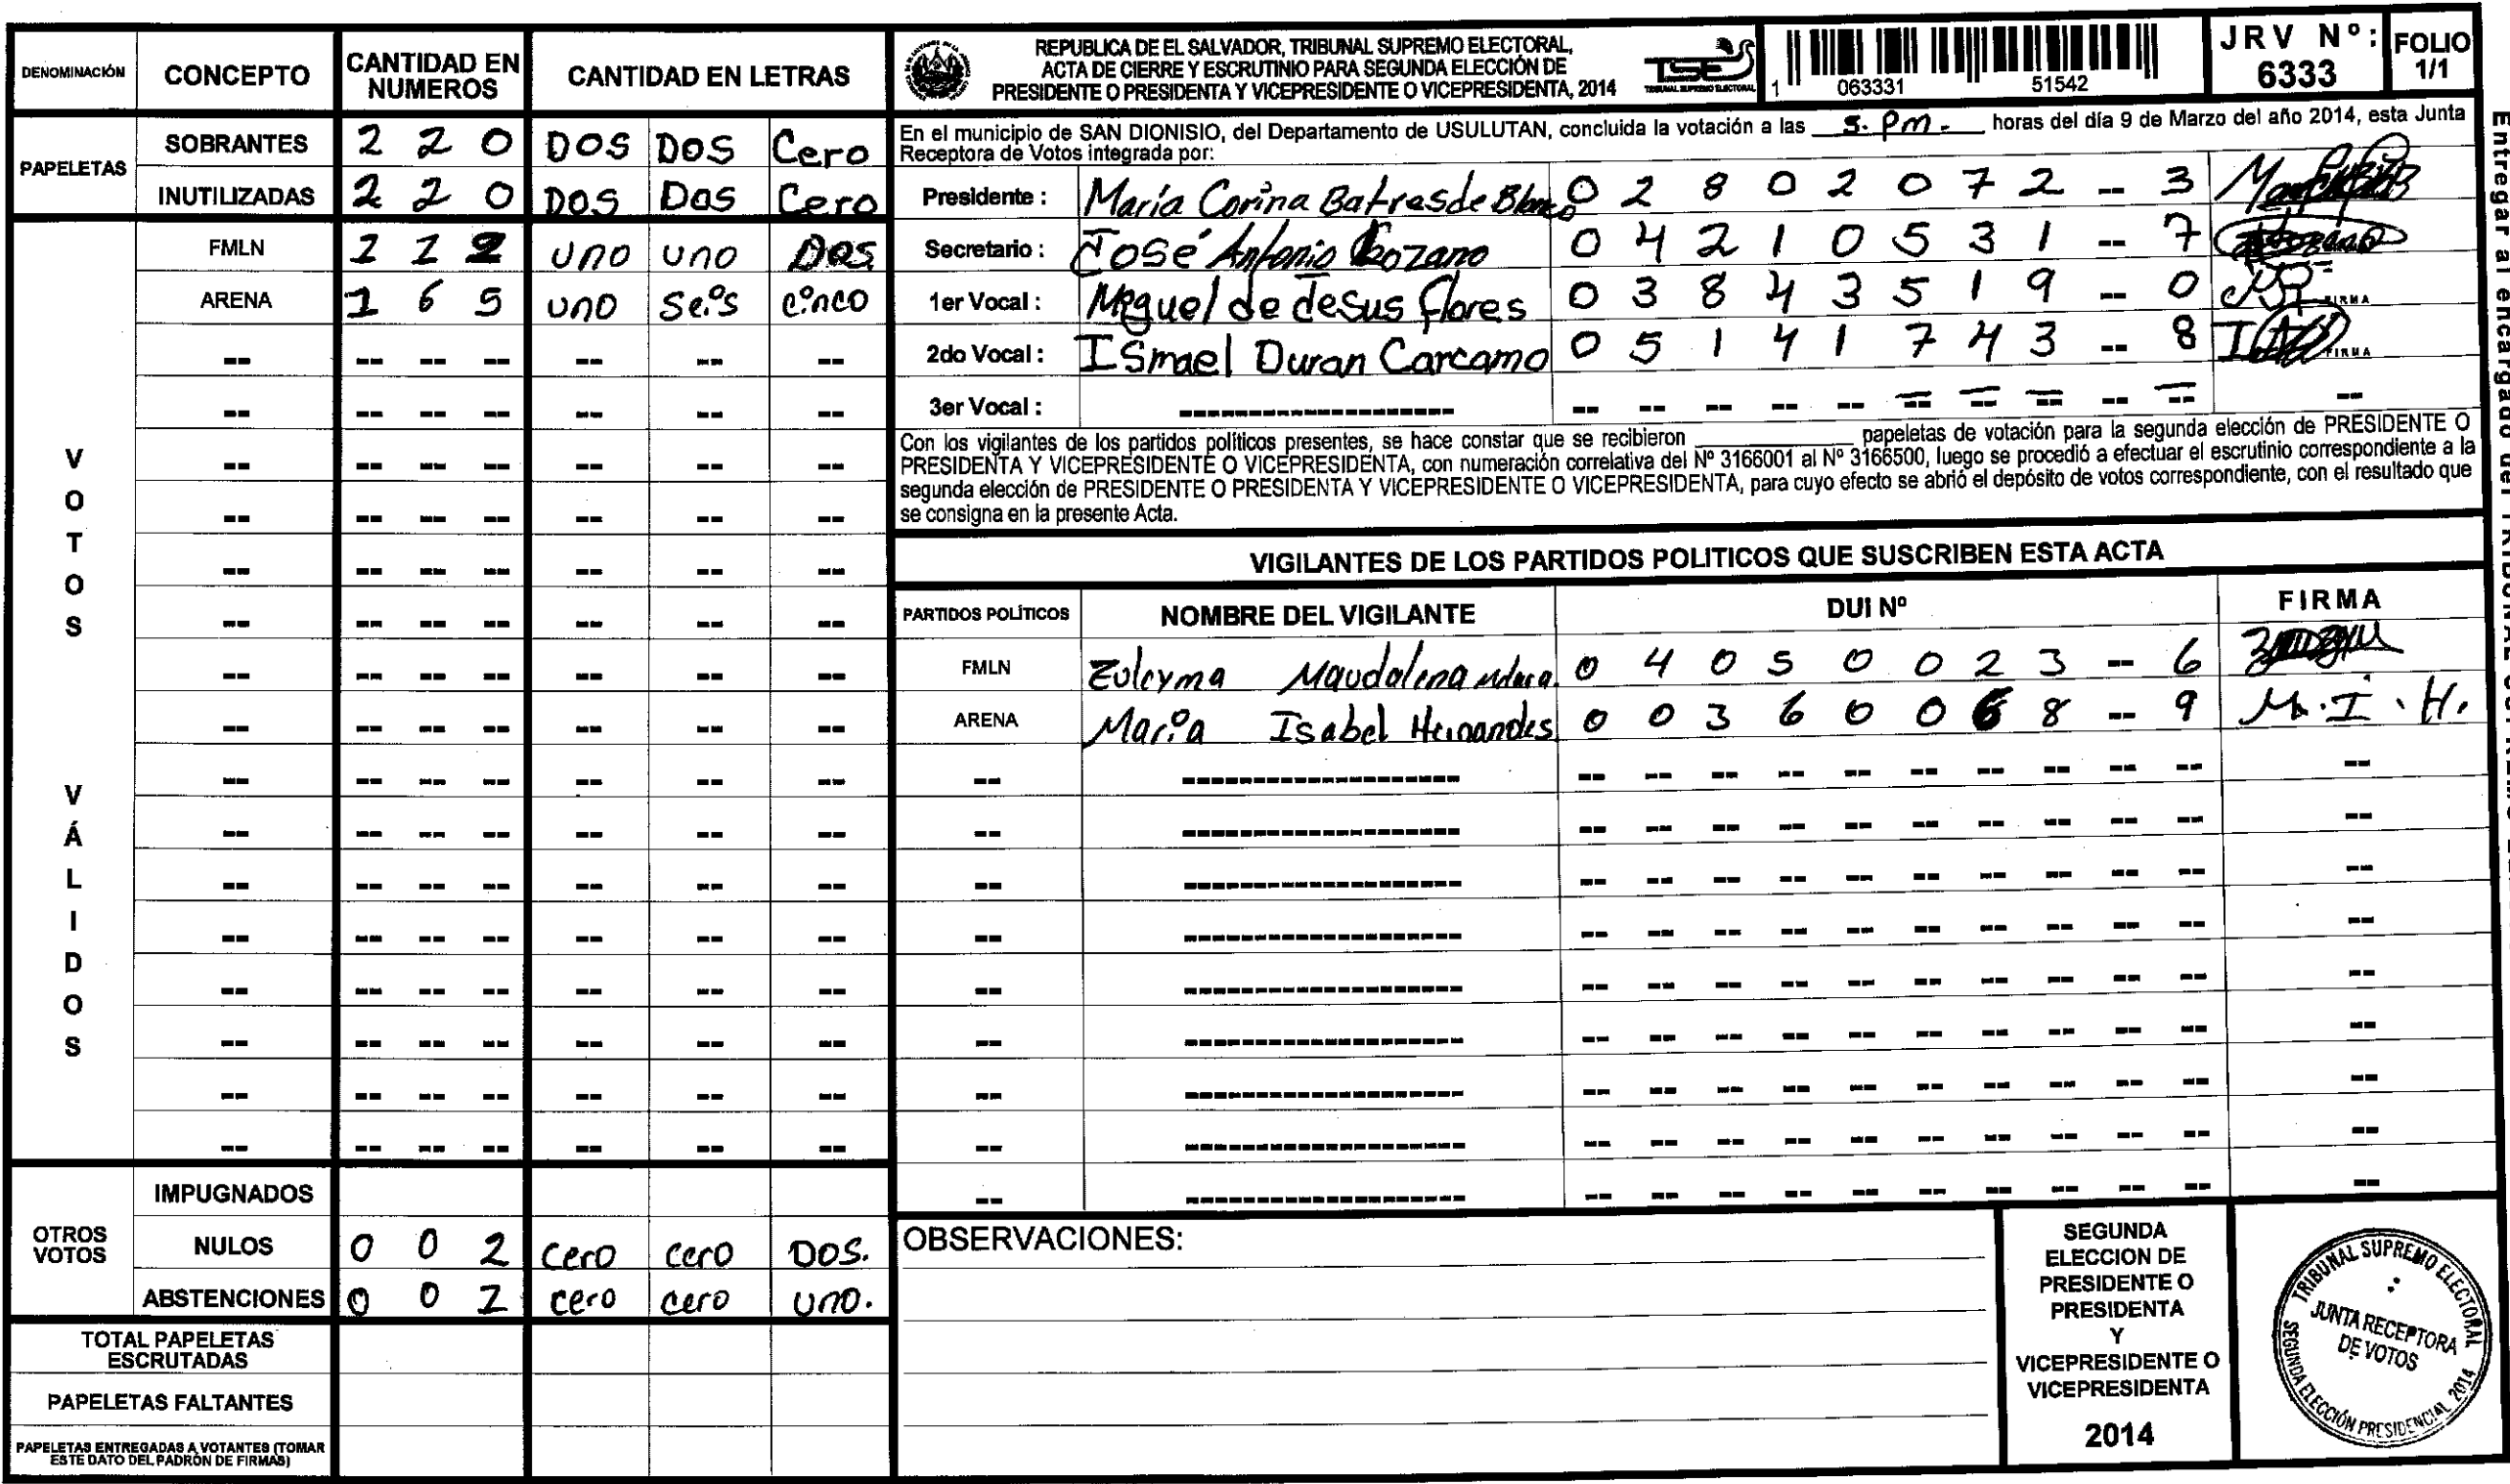 DENOMINACIÓN CONCEPTO CANTIDAD EN NUMEROS CANTIDAD EN LETRAS
PAPELETAS
SOBRANTES 2 2 0 DOS DOS Cero
INUTILIZADAS 2 2 0 DOS DOS Cero
VOTOS VÁLIDOS
FMLN 1 1 2 uno uno Dos
ARENA 1 6 5 uno seis cinco
OTROS VOTOS
IMPUGNADOS
NULOS 0 0 2 cero cero DOS.
ABSTENCIONES 0 0 1 cero cero uno.
TOTAL PAPELETAS ESCRUTADAS
PAPELETAS FALTANTES
PAPELETAS ENTREGADAS A VOTANTES (TOMAR
ESTE DATO DEL PADRÓN DE FIRMAS)
REPUBLICA DE EL SALVADOR, TRIBUNAL SUPREMO ELECTORAL,
ACTA DE CIERRE Y ESCRUTINIO PARA SEGUNDA ELECCIÓN DE
PRESIDENTE O PRESIDENTA Y VICEPRESIDENTE O VICEPRESIDENTA, 2014
TSE
TRIBUNAL SUPREMO ELECTORAL
1 063331 51542
JRV Nº: 6333
FOLIO 1/1
En el municipio de SAN DIONISIO, del Departamento de USULUTAN, concluida la votación a las 5. Pm. horas del día 9 de Marzo del año 2014, esta Junta
Receptora de Votos integrada por:
Presidente : María Corina Batres de Blanco 0 2 8 0 2 0 7 2 -- 3
Secretario : José Antonio 0 4 2 1 0 5 3 1 -- 7
1er Vocal : Miguel de Jesus flores 0 3 8 4 3 5 1 9 -- 0 FIRMA
2do Vocal : Ismael Duran Carcamo 0 5 1 4 1 7 4 3 -- 8 FIRMA
3er Vocal :
Con los vigilantes de los partidos políticos presentes, se hace constar que se recibieron ________ papeletas de votación para la segunda elección de PRESIDENTE O
PRESIDENTA Y VICEPRESIDENTE O VICEPRESIDENTA, con numeración correlativa del Nº 3166001 al Nº 3166500, luego se procedió a efectuar el escrutinio correspondiente a la
segunda elección de PRESIDENTE O PRESIDENTA Y VICEPRESIDENTE O VICEPRESIDENTA, para cuyo efecto se abrió el depósito de votos correspondiente, con el resultado que
se consigna en la presente Acta.
VIGILANTES DE LOS PARTIDOS POLITICOS QUE SUSCRIBEN ESTA ACTA
PARTIDOS POLÍTICOS NOMBRE DEL VIGILANTE DUI Nº FIRMA
FMLN Zuleyma 0 4 0 5 0 0 2 3 -- 6
ARENA Maria Isabel Hernandes 0 0 3 6 0 0 6 8 -- 9 M.I.H.
OBSERVACIONES:
SEGUNDA
ELECCION DE
PRESIDENTE O
PRESIDENTA
Y
VICEPRESIDENTE O
VICEPRESIDENTA
2014
TRIBUNAL SUPREMO ELECTORAL
JUNTA RECEPTORA
DE VOTOS
SEGUNDA ELECCIÓN PRESIDENCIAL 2014
Entregar al encargado del